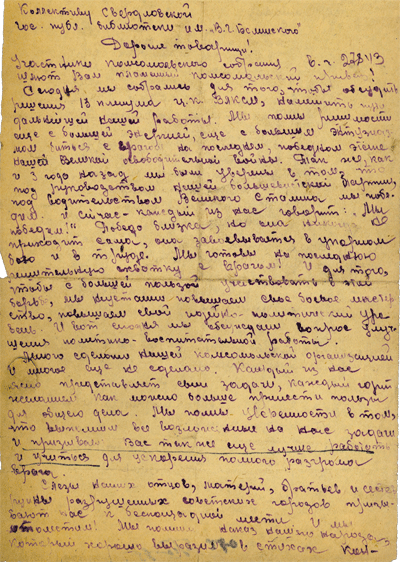 Коллективу Свердловской
гос. публ. библиотеки им. "В.Г. Белинского"
Дорогие товарищи!
Участники комсомольского собрания в.ч. 22813
шлют Вам пламенный комсомольский привет!
Сегодня, мы собрались для того, чтобы обсудить
решения 13 пленума Ц.К. ВЛКСМ, наметить пути
дальнейшей нашей работы. Мы полны решимости
еще с большей энергией, еще с большим энтузиаз-
мом биться с врагом на последнем, победном этапе
нашей Великой освободительной войны. Так же, как
и 3 года назад мы были уверены в том, что
под руководством нашей большевистской партии,
под водительством Великого Сталина мы побе-
дим. И сейчас каждый из нас говорит: "Мы
победим!" Победа близка, но она никогда не
приходит сама, она завоевывается в упорном
бою и в труде. Мы готовы на последнюю
решительную схватку с врагом! И для того,
чтобы с большей пользой участвовать в этой
борьбе, мы неустанно повышаем свое боевое мастер-
ство, повышаем свой идейно-политический уро-
вень. И вот сегодня мы обсуждаем вопрос улуч-
шения политико-воспитательной работы.
Много сделано нашей комсомольской организацией
и многое еще не сделано. Каждый из нас
ясно представляет свои задачи, каждый горит
желанием как можно больше принести пользы
для общего дела. Мы полны уверенности в том,
что выполним все возложенные на нас задачи
и призываем Вас так же еще лучше работать
и учиться для ускорения полного разгрома
врага.
Слезы наших отцов, матерей, братьев и сестер
руины разрушенных советских городов призы-
вают нас к беспощадной мести. И мы
отомстим! Мы помним наказ нашего народа,
который хорошо выразил в стихах